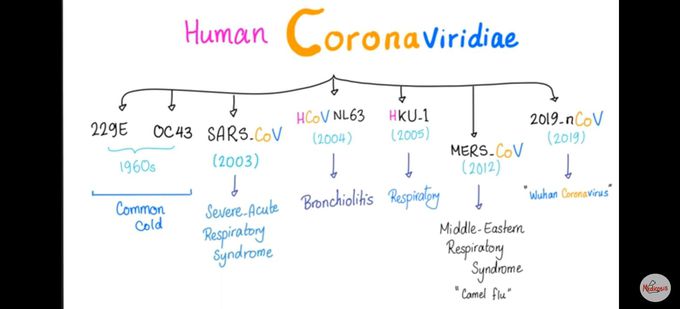 Human CoronaViridiae
229E
OC43
1960s
Common
Cold
SARS_CoV
(2003)
Severe-Acute
Respiratory
Syndrome
HCoV NL63
(2004)
Bronchiolitis
HKU-1
(2005)
Respiratory
MERS_CoV
(2012)
Middle-Eastern
Respiratory
Syndrome
"Camel flu"
2019_nCoV
(2019)
"Wuhan Coronavirus"
Medicosis